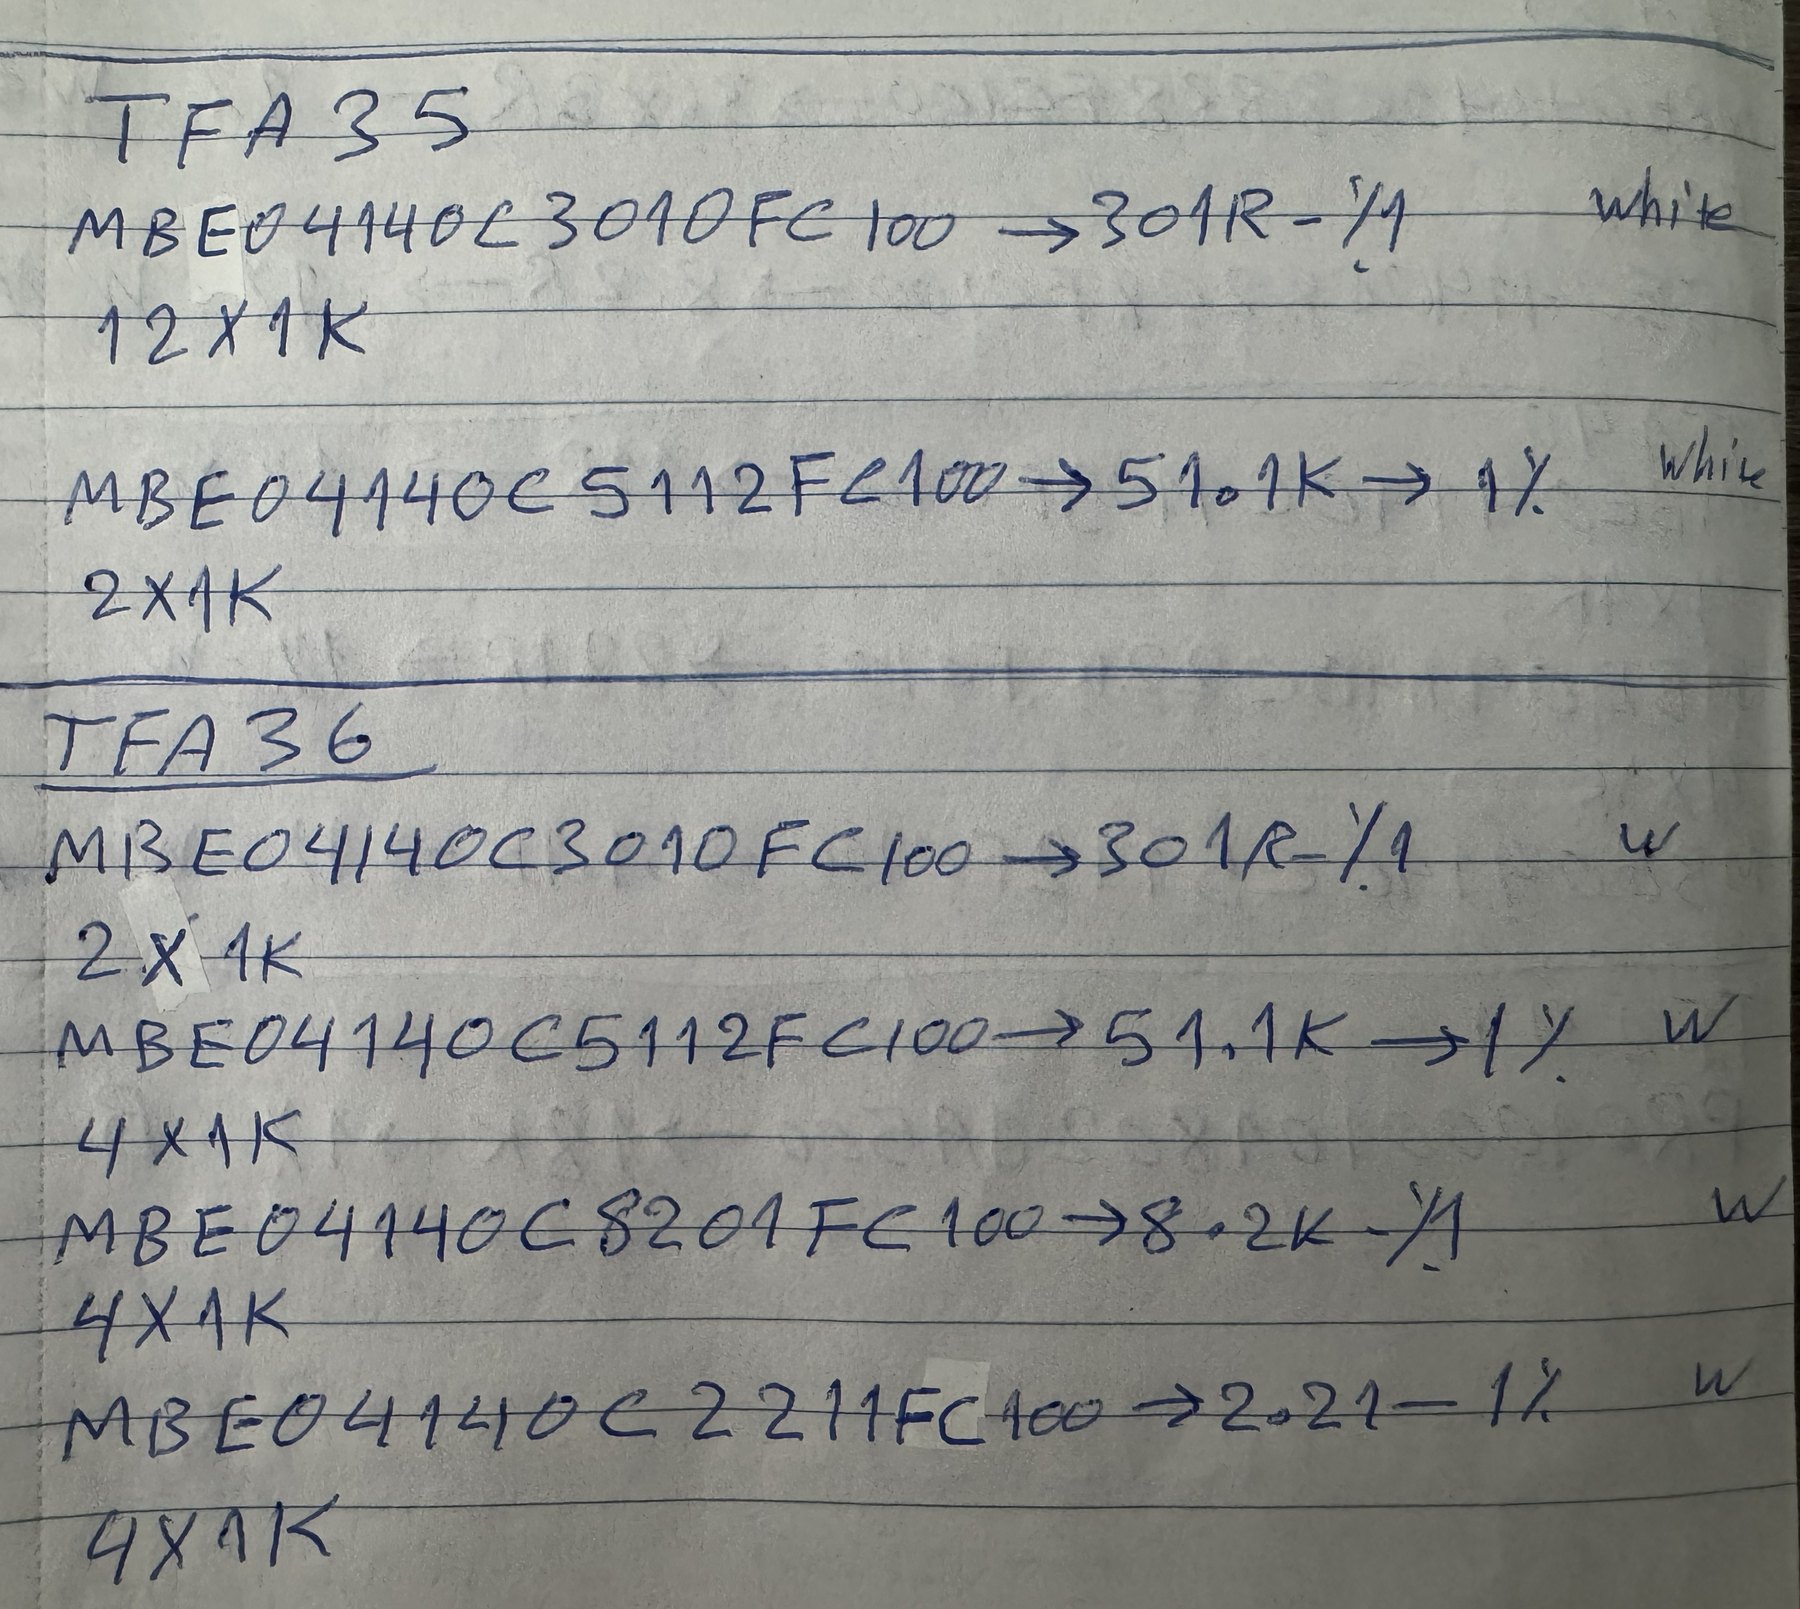 TFA35
MBE04140C3010FC100 → 301R - %1 white
12X1K
MBE04140C5112FC100 → 51.1K → 1% white
2X1K
TFA36
MBE04140C3010FC100 → 301R - %1 W
2X1K
MBE04140C5112FC100 → 51.1K → 1% W
4X1K
MBE04140C8201FC100 → 8.2K - %1 W
4X1K
MBE04140C2211FC100 → 2.21 - 1% W
4X1K